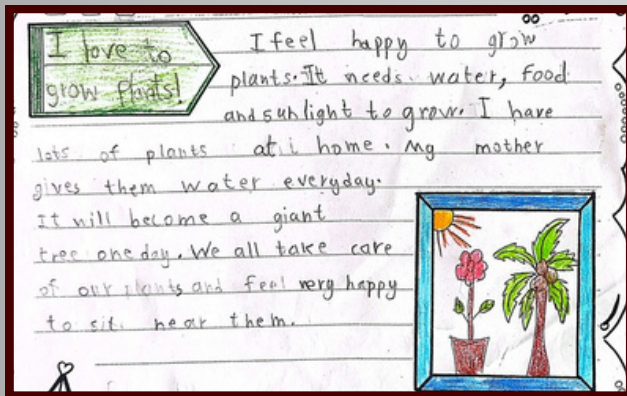 I love to
grow plants!
I feel happy to grow
plants. It needs water, food
and sunlight to grow. I have
lots of plants at i home. My mother
gives them water everyday.
It will become a giant
tree one day. We all take care
of our plants and feel very happy
to sit near them.